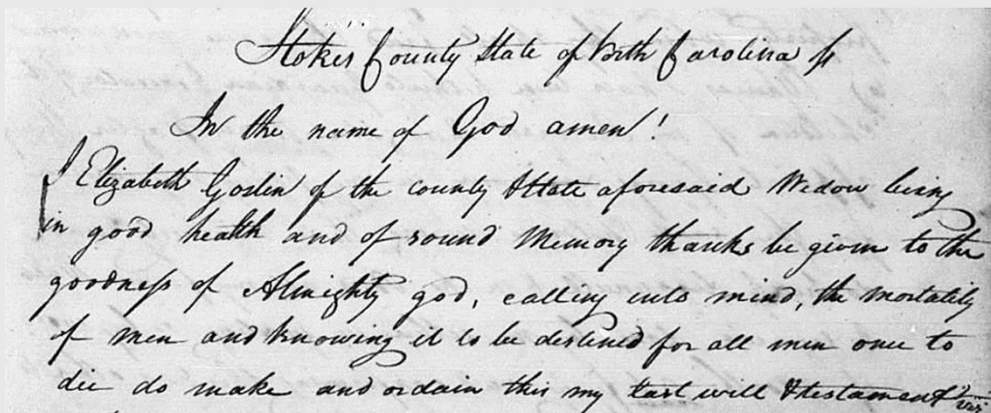 Stokes County State of North Carolina ss
In the name of God amen!
I Elizabeth Goslin of the county & State aforesaid Widow being
in good health and of sound Memory thanks be given to the
goodness of Almighty god, calling into mind, the mortality
of men and knowing it to be destined for all men once to
die do make and ordain this my last will & testament viz